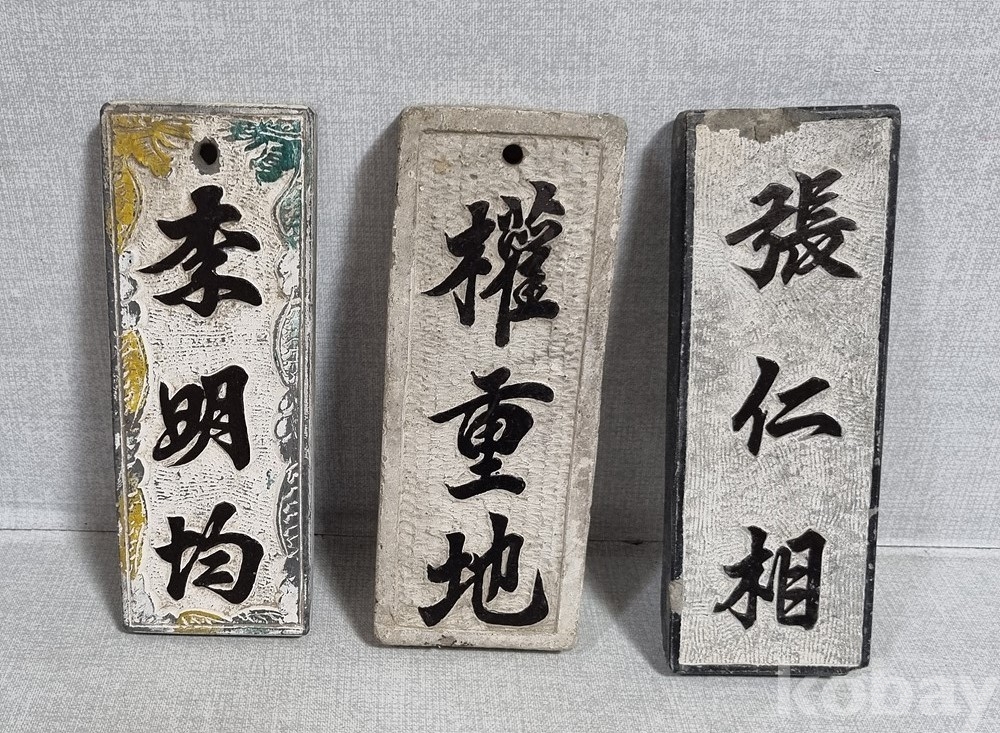 李明均
權重地
張仁相
kobay